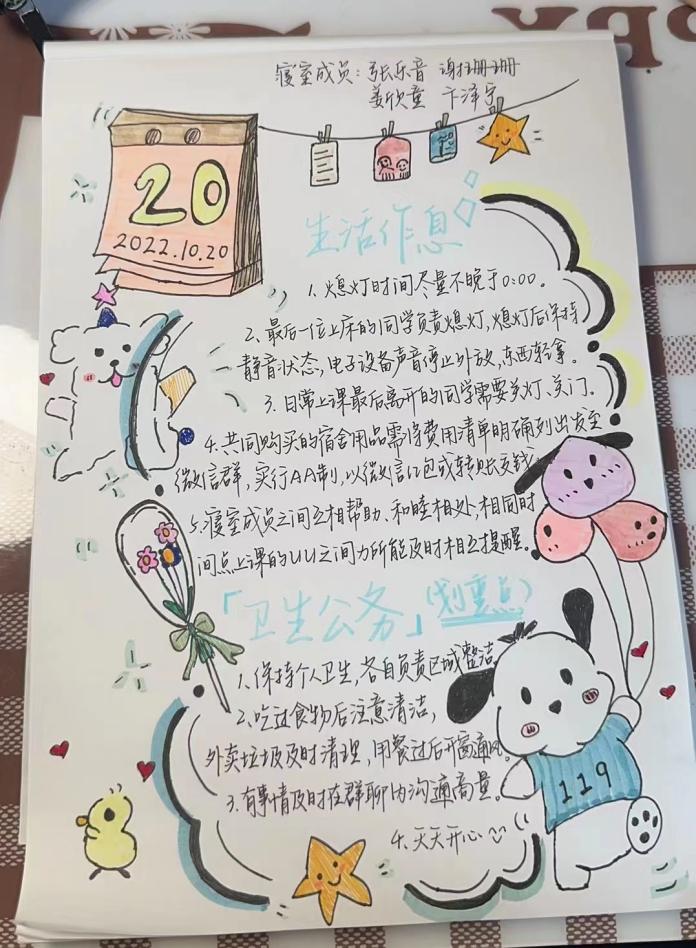 寝室成员：张乐音 谢珊珊
姜欣童 卞泽宇
20
2022.10.20
生活作息
1. 熄灯时间尽量不晚于0:00。
2. 最后一位上床的同学负责熄灯，熄灯后保持
静音状态，电子设备声音停止外放，东西轻拿。
3. 日常上课最后离开的同学需要关灯、关门。
4. 共同购买的宿舍用品需将费用清单明确列出发至
微信群，实行AA制，以微信红包或转账交钱。
5. 寝室成员之间互相帮助、和睦相处，相同时
间点上课的UU之间力所能及时相互提醒。
「卫生公务」（划重点）
1. 保持个人卫生，各自负责区域整洁。
2. 吃过食物后注意清洁，
外卖垃圾及时清理，用餐过后开窗通风。
3. 有事情及时在群聊内沟通商量。
4. 天天开心
119